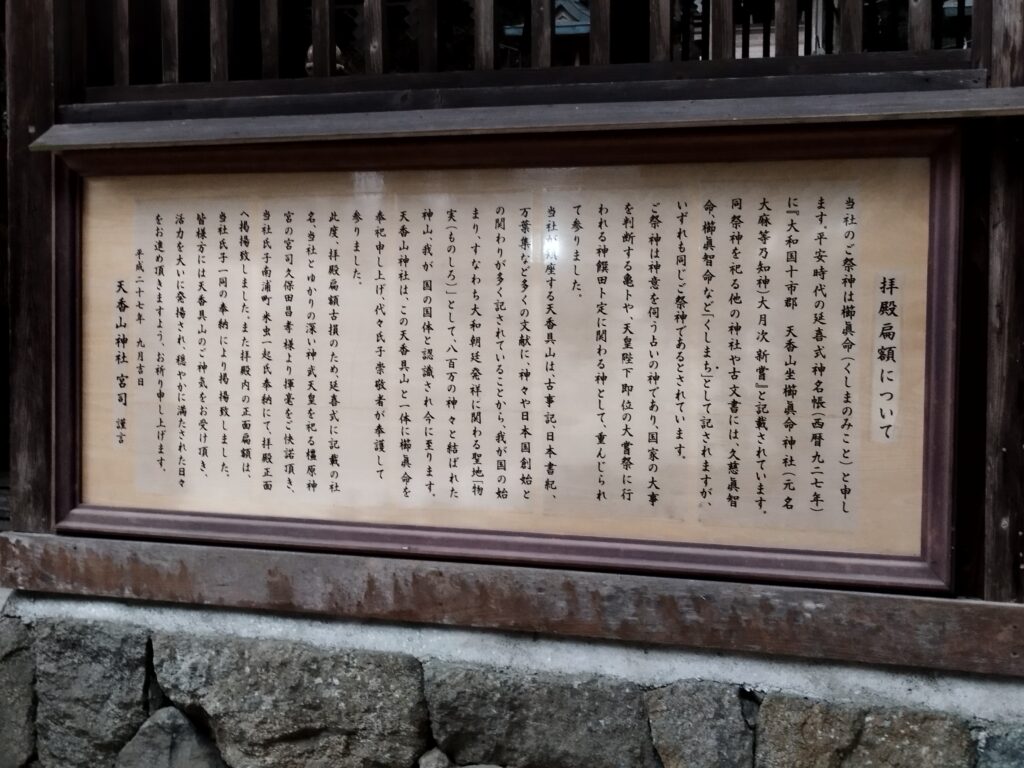 拝殿扁額について
当社のご祭神は櫛眞命（くしまのみこと）と申し
ます。平安時代の延喜式神名帳（西暦九二七年）
に『大和国十市郡　天香山坐櫛眞命神社（元名
大麻等乃知神）大月次新嘗』と記載されています。
同祭神を祀る他の神社や古文書には、久慈眞智
命、櫛眞智命など「くしまち」として記されますが、
いずれも同じご祭神であるとされています。
ご祭神は神意を伺う占いの神であり、国家の大事
を判断する亀卜や、天皇陛下即位の大嘗祭に行
われる神饌田卜定に関わる神として、重んじられ
て参りました。
当社が鎮座する天香具山は、古事記、日本書紀、
万葉集など多くの文献に、神々や日本国創始と
の関わりが多く記されていることから、我が国の始
まり、すなわち大和朝廷発祥に関わる聖地「物
実（ものしろ）」として、八百万の神々と結ばれた
神山、我が国の国体と認識され今に至ります。
天香山神社は、この天香具山と一体に櫛眞命を
奉祀申し上げ、代々氏子崇敬者が奉護して
参りました。
此度、拝殿扁額古損のため、延喜式に記載の社
名、当社とゆかりの深い神武天皇を祀る橿原神
宮の宮司久保田昌孝様より揮毫をご快諾頂き、
当社氏子南浦町米虫一起氏奉納にて、拝殿正面
へ掲揚致しました。また拝殿内の正面扁額は、
当社氏子一同の奉納により掲揚致しました。
皆様方には天香具山のご神気をお受け頂き、
活力を大いに発揚され、穏やかに満たされた日々
をお進め頂きますよう、お祈り申し上げます。
平成二十七年　九月吉日
天香山神社　宮司　謹言